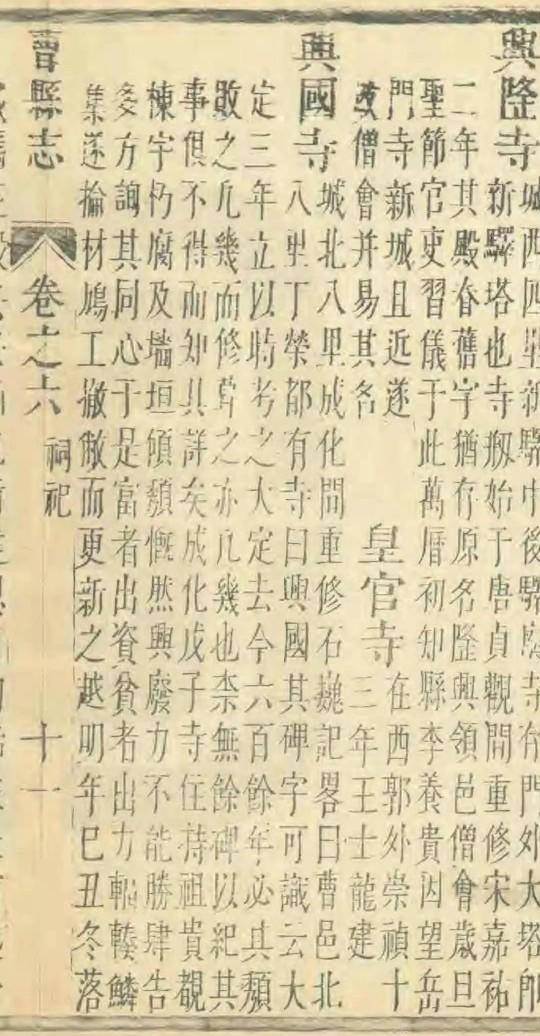 興隆寺城西四里新驛中後驛廢寺存門外大塔即
新驛塔也寺剏始于唐貞觀間重修宋嘉祐
二年其殿脊舊字猶存原名隆興領邑僧會歲旦
聖節官吏習儀于此萬曆初知縣李養貴因望岳
門寺新城且近遂
改僧會并易其名
皇官寺在西郭外崇禎十
三年王士龍建
興國寺城北八里成化間重修石巍記畧曰曹邑北
八里丁榮都有寺曰興國其碑字可識云大
定三年立以時考之大定去今六百餘年必其頽
敗之凢幾而修葺之亦凢幾也柰無餘碑以紀其
事俱不得而知其詳矣成化戊子寺住持祖貴覩
棟宇朽腐及墻垣傾頽慨然興廢力不能勝肆告
多方詢其同心于是富者出資貧者出力輻輳鱗
集遂掄材鳩工撤敝而更新之越明年巳丑冬落
曹縣志 卷之六 祠祀 十一